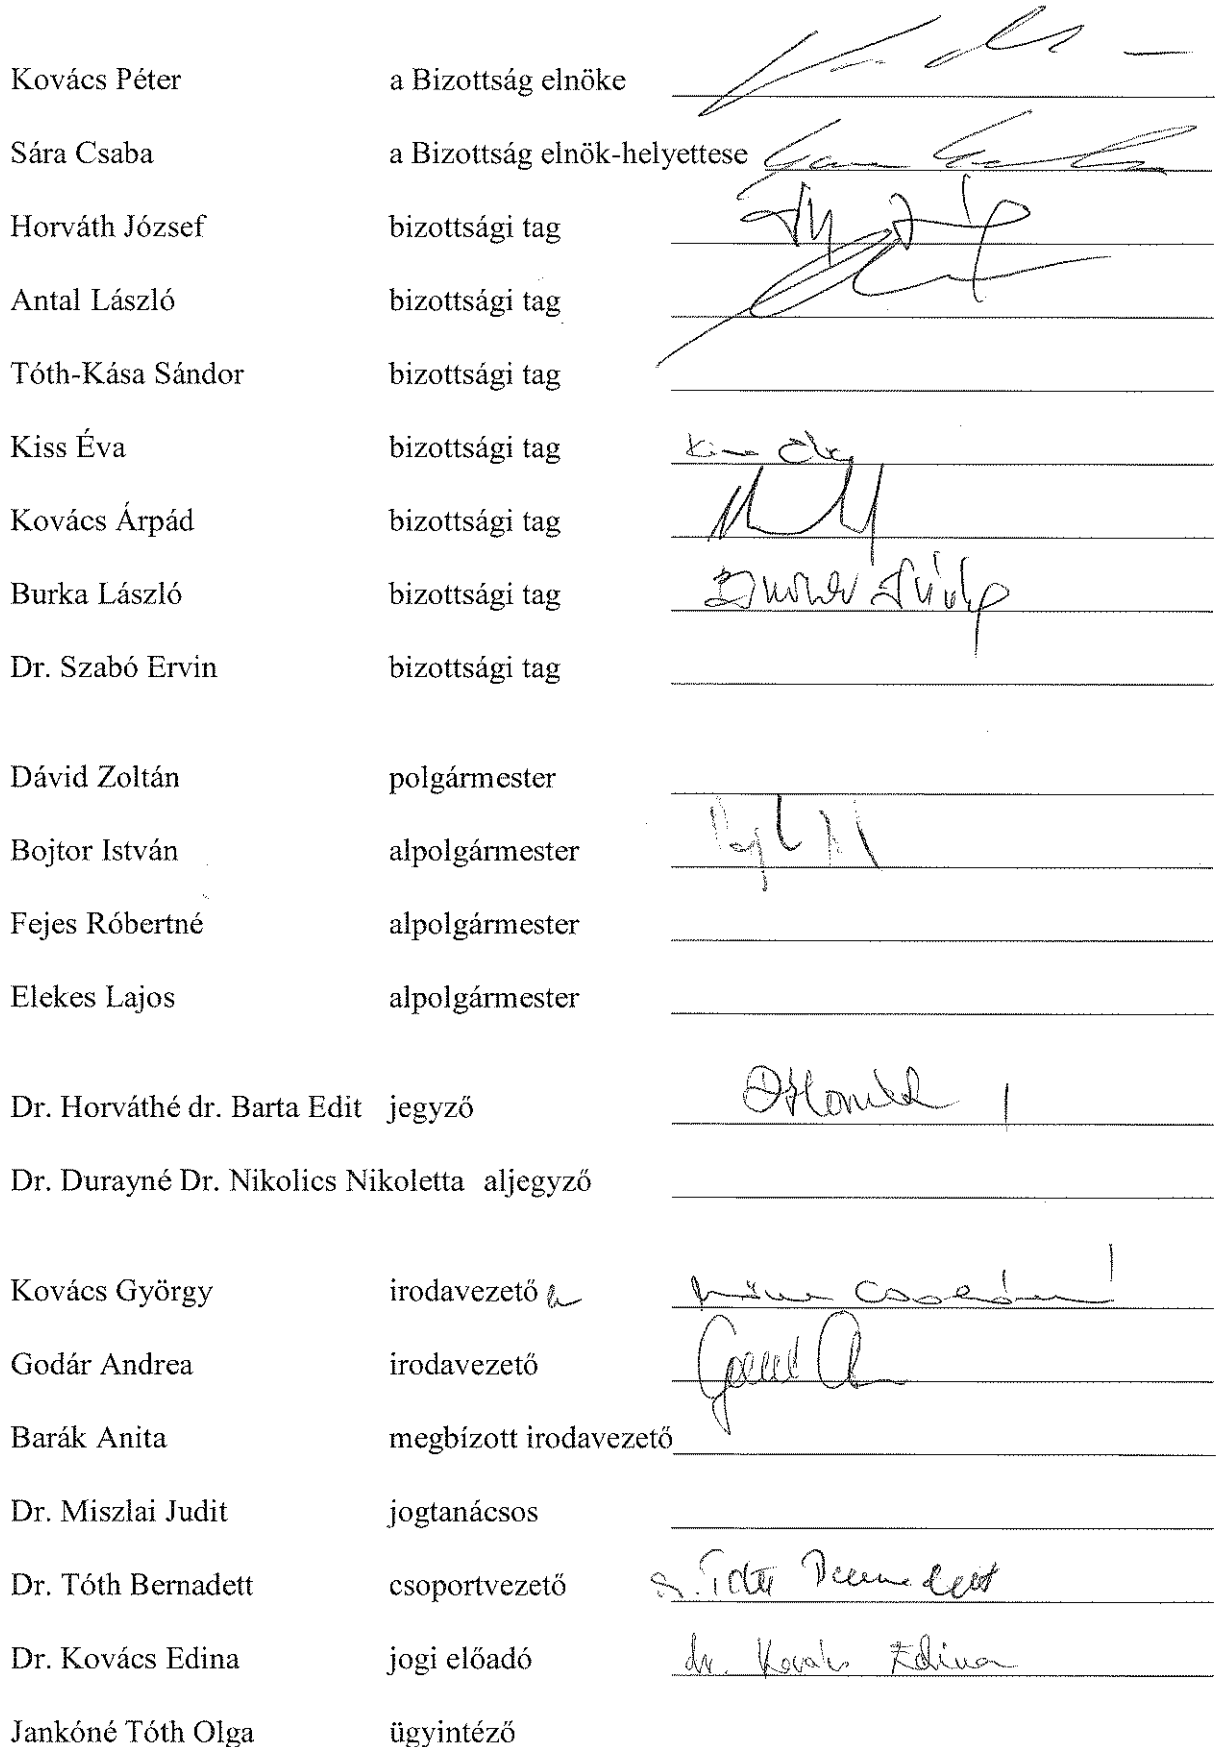 Kovács Péter a Bizottság elnöke
Sára Csaba a Bizottság elnök-helyettese
Horváth József bizottsági tag
Antal László bizottsági tag
Tóth-Kása Sándor bizottsági tag
Kiss Éva bizottsági tag
Kovács Árpád bizottsági tag
Burka László bizottsági tag
Dr. Szabó Ervin bizottsági tag
Dávid Zoltán polgármester
Bojtor István alpolgármester
Fejes Róbertné alpolgármester
Elekes Lajos alpolgármester
Dr. Horváthé dr. Barta Edit jegyző
Dr. Durayné Dr. Nikolics Nikoletta aljegyző
Kovács György irodavezető
Godár Andrea irodavezető
Barák Anita megbízott irodavezető
Dr. Miszlai Judit jogtanácsos
Dr. Tóth Bernadett csoportvezető Tóth Bernadett
Dr. Kovács Edina jogi előadó dr. Kovács Edina
Jankóné Tóth Olga ügyintéző